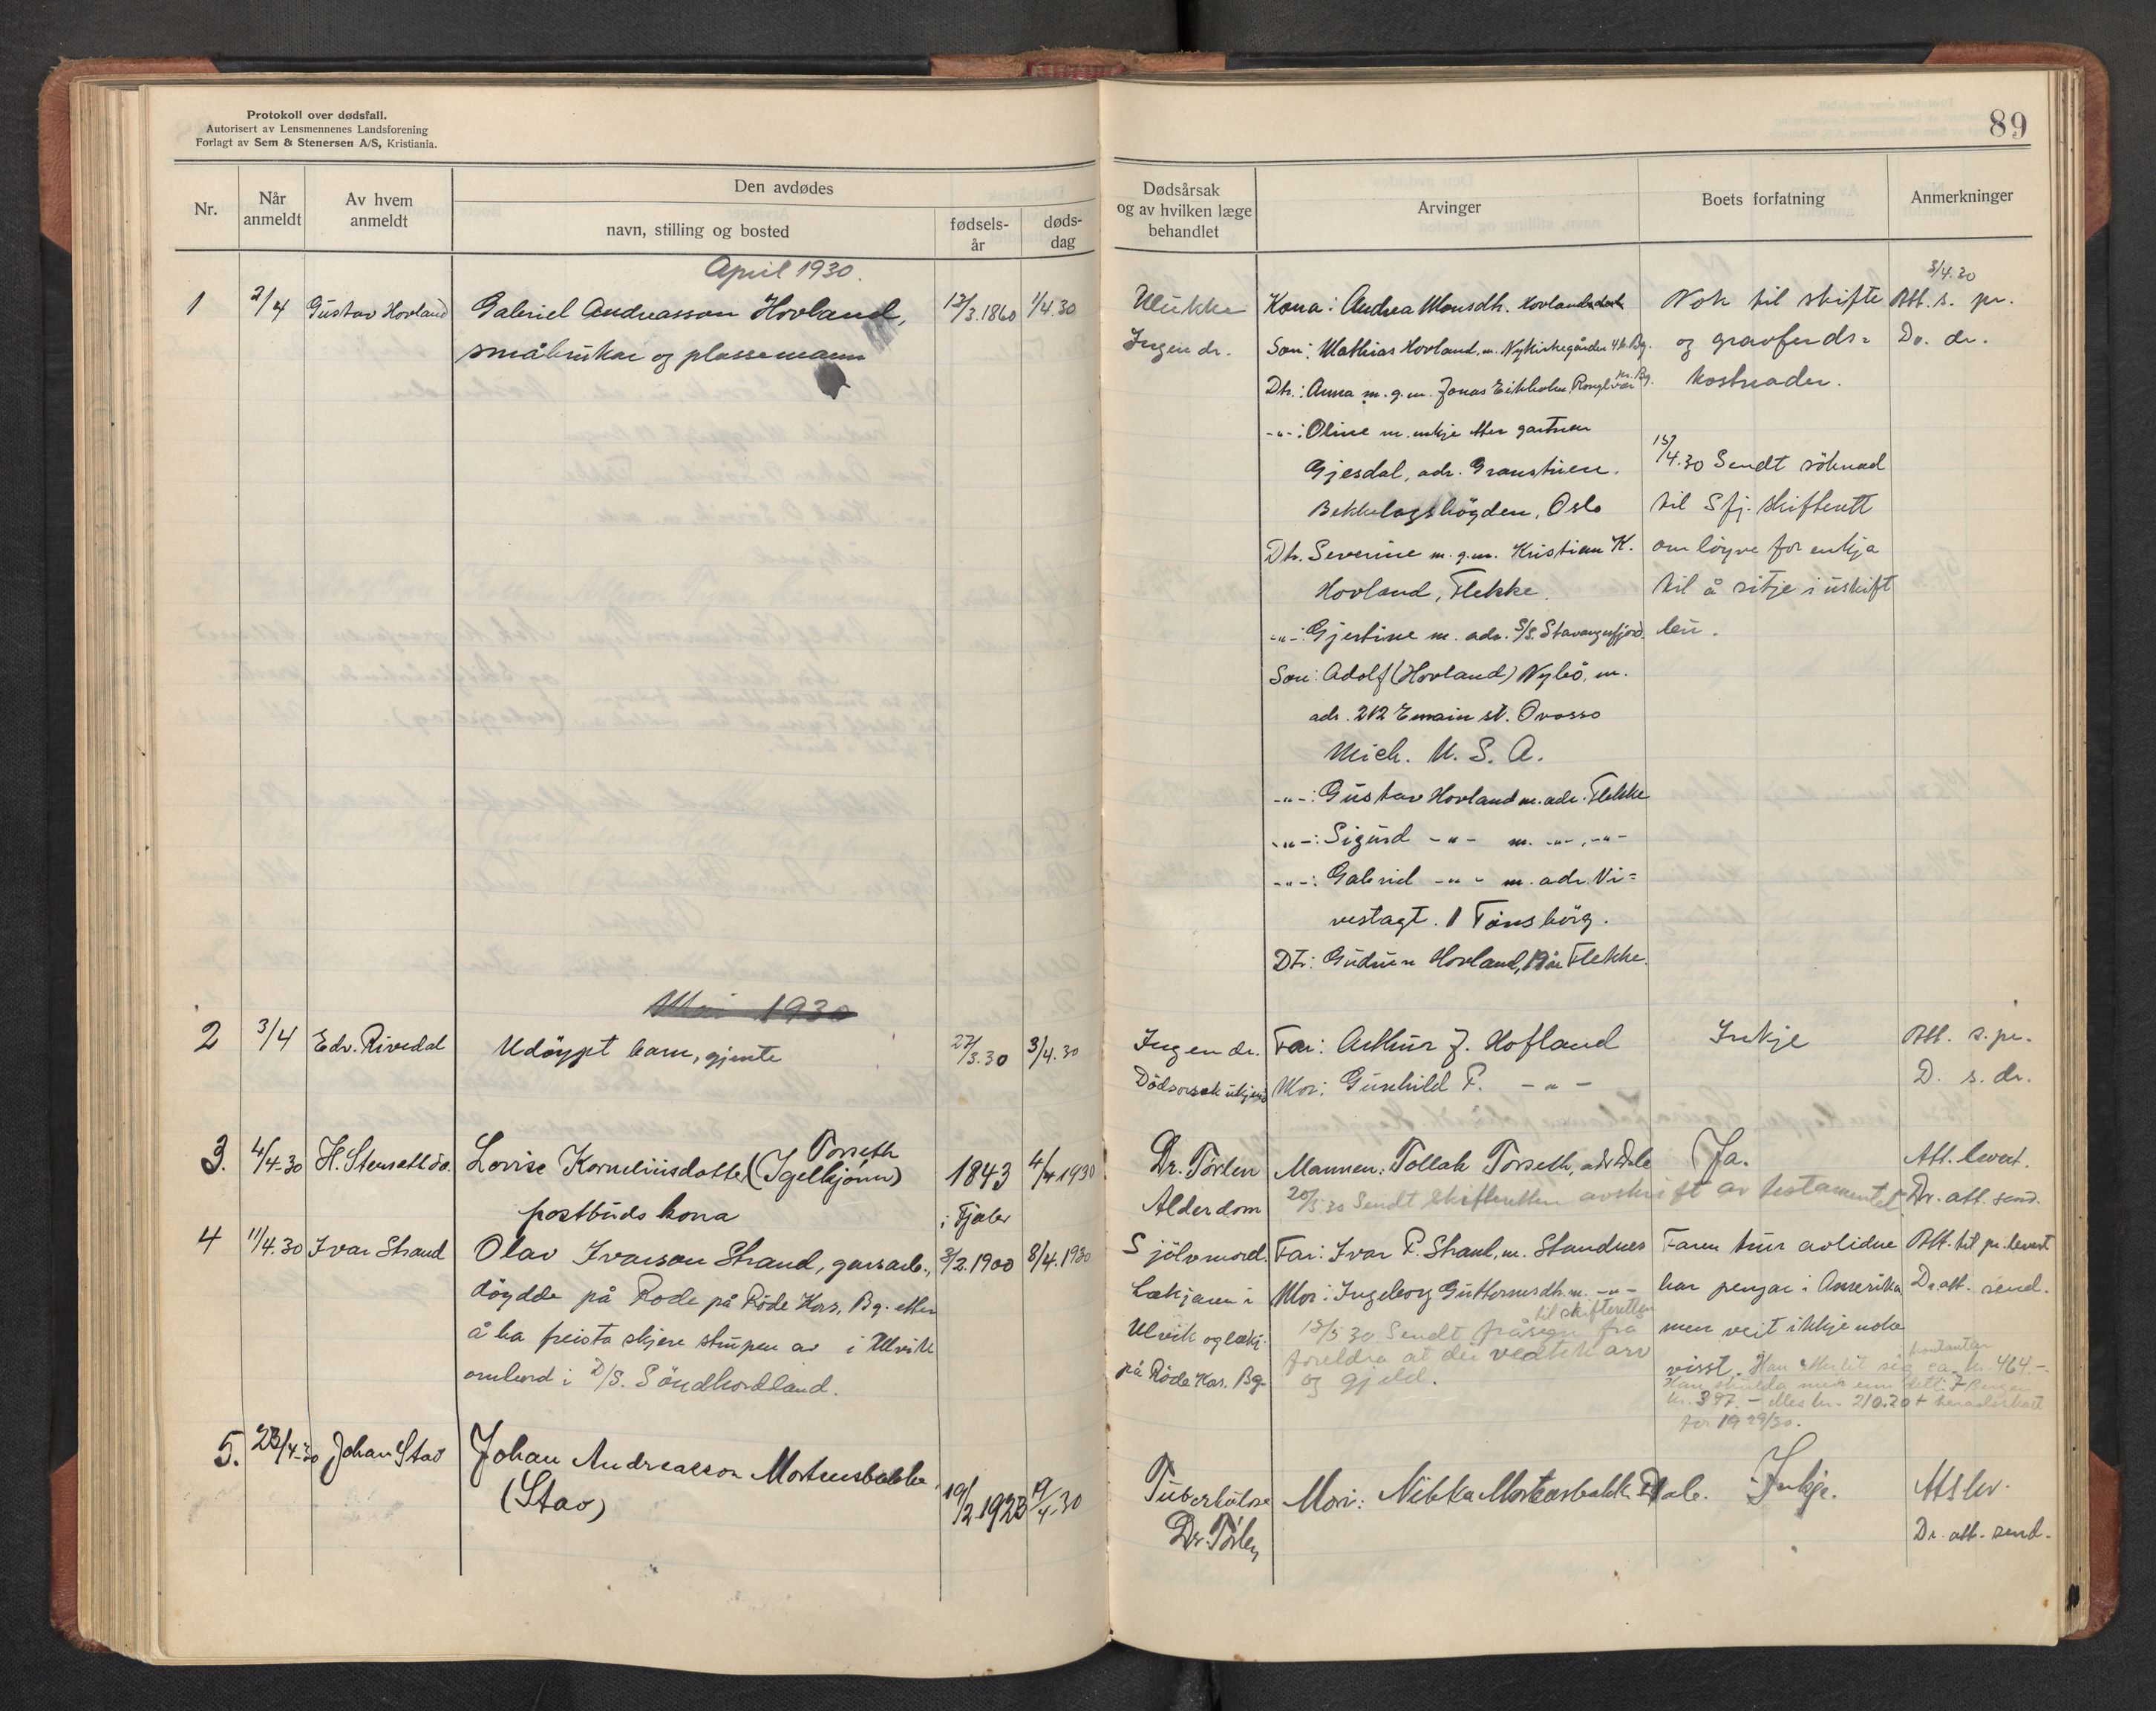 Protokoll over dødsfall.
Autorisert av Lensmennenes Landsforening
Forlagt av Sem & Stenersen A/S, Kristiania.
Nr.
Når anmeldt
Av hvem anmeldt
Den avdødes
navn, stilling og bosted
fødsels-år
døds-dag
April 1930.
1 2/4 Gustav Hovland Gabriel Andreasson Hovland, 12/3.1860 1/4.30
småbrukar og plassemann
Mai 1930
2 3/4 Edv. Rivedal Udøypt barn, gjente 27/3.30 3/4.30
Torseth
3. 4/4.30 H. Stensetdo. Lovise Korneliusdotter (Igelkjønn) 1843 4/4 1930
postbuds kona i Fjaler
4 11/4.30 Ivar Strand Olav Ivarson Strand, garsarb., 3/2.1900 8/4.1930
döydde på Rode på Röde Kors, Bg. etter
å ha freista skjere strupen av i Ulvik
ombord i D/S. Söndhordland.
5. 23/4-30 Johan Stav Johan Andreasson Mortensbakke
(Stav) 19/2 1923 19/4-30
89
Dødsårsak og av hvilken læge behandlet
Arvinger
Boets forfatning
Anmerkninger
3/4.30
Kona: Andrea Monsdh. Hovland Nok til skifte Att. s. pr.
Ingen dr. Son: Mathias Hovland, m. Nykirkegården 46. Bg. og gravferds= Do. dr.
Dtr.: Anna m. g. m. Jonas Eikholm, Rongevær pr. Bg. kostnader.
-"-: Oline m. enkje etter gartner
Gjesdal, adr. Granstuen. 15/4.30 Sendt söknad
Bekkelagshögden, Oslo til Sfj. skifterett
Dtr. Severine m. g. m. Kristian K. om löyve for enkja
Hovland, Flekke. til å sitje i uskift
-"-: Gjertine m. adr. S/S. Stavangerfjord. bu.
Son: Adolf (Hovland) Nybö, m.
adr. 212 E main st. Ovosso
Mich. U. S. A.
-"-: Gustav Hovland m. adr. Flekke
-"-: Sigurd -"- m. -"-, -"-
-"-: Gabriel -"- m. adr. Vi=
vestagt. 1 Tönsbörg.
Dtr: Gudrun Hovland, 19 år Flekke.
Ingen dr. Far: Arthur J. Hofland Inkje Att. s. pr.
Dödsorsak ukjend Mor: Gunhild P. -"- D. s. dr.
Dr. Törlen Mannen: Tollak Torseth, adr Dale Ja. Att. levert.
Alderdom 20/5 30 Sendt skifteretten avskrift av testamentet Dr. att. send.
Sjölvmord. Far: Ivar P. Strand, m. Standnes Faren trur avlidne Att. til pr. levert
Lækjaren i Mor: Ingeborg Guttormsdh. m. -"- har pengar i Amerika, Dr. att. send.
Ulvik og lækj. 12/5 30 Sendt fråsegn frå til skifteretten men veit ikkje noko
på Röde Kors. Bg. foreldra at dei vedtek arv visst. Han etterlet seg ca. kr. 464.- kontanter
og gjeld. Han skulda
kr. 397.- elles kr. 210.20 +
for 1929/30.
Tuberkulose Mor: Nikka Mortensbakk Dale. Inkje. Att lev.
Dr. Törlen Dr. att. send.